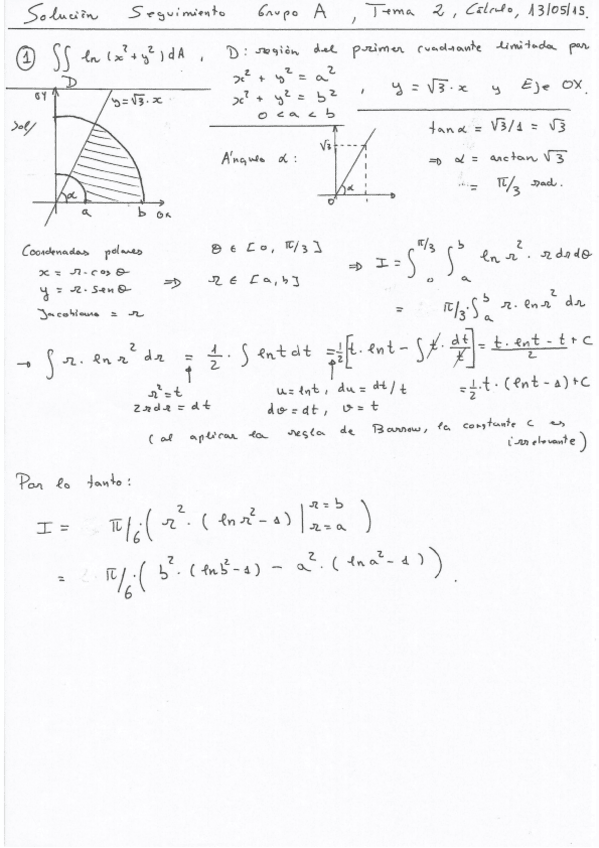 Solución Seguimiento Grupo A, Tema 2, Cálculo, 13/05/15.
① ∬_D ln(x²+y²)dA, D: región del primer cuadrante limitada por
x² + y² = a²
x² + y² = b² , y = √3·x y Eje OX.
0 < a < b
Sol/
OY
y=√3·x
α
a
b
OX
Ángulo α:
√3
α
0
tanα = √3/1 = √3
⇒ α = arctan √3
= π/3 rad.
Coordenadas polares
x = r·cosθ
y = r·senθ
Jacobiano = r
⇒ θ ∈ [0, π/3]
r ∈ [a,b]
⇒ I = ∫_0^{π/3} ∫_a^b ln r² · r dr dθ
= π/3·∫_a^b r·ln r² dr
→ ∫ r·ln r² dr = 1/2·∫ ln t dt = 1/2[t·ln t − ∫ t·dt/t] = (t·ln t − t)/2 + C
r²=t
2rdr = dt
u=lnt, du = dt/t
dv=dt, v=t
= 1/2·t·(lnt−1)+C
(al aplicar la regla de Barrow, la constante C es
irrelevante)
Por lo tanto:
I = π/6·( r²·(ln r²−1) |_{r=a}^{r=b} )
= π/6·( b²·(lnb²−1) − a²·(lna²−1) ).